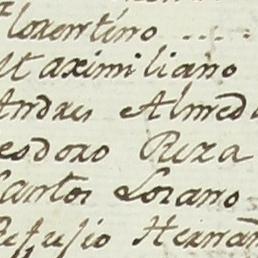 Florentino ....
Maximiliano
Andres Almed
eodoro Reza
Santos Lozano
Refujio Hernan